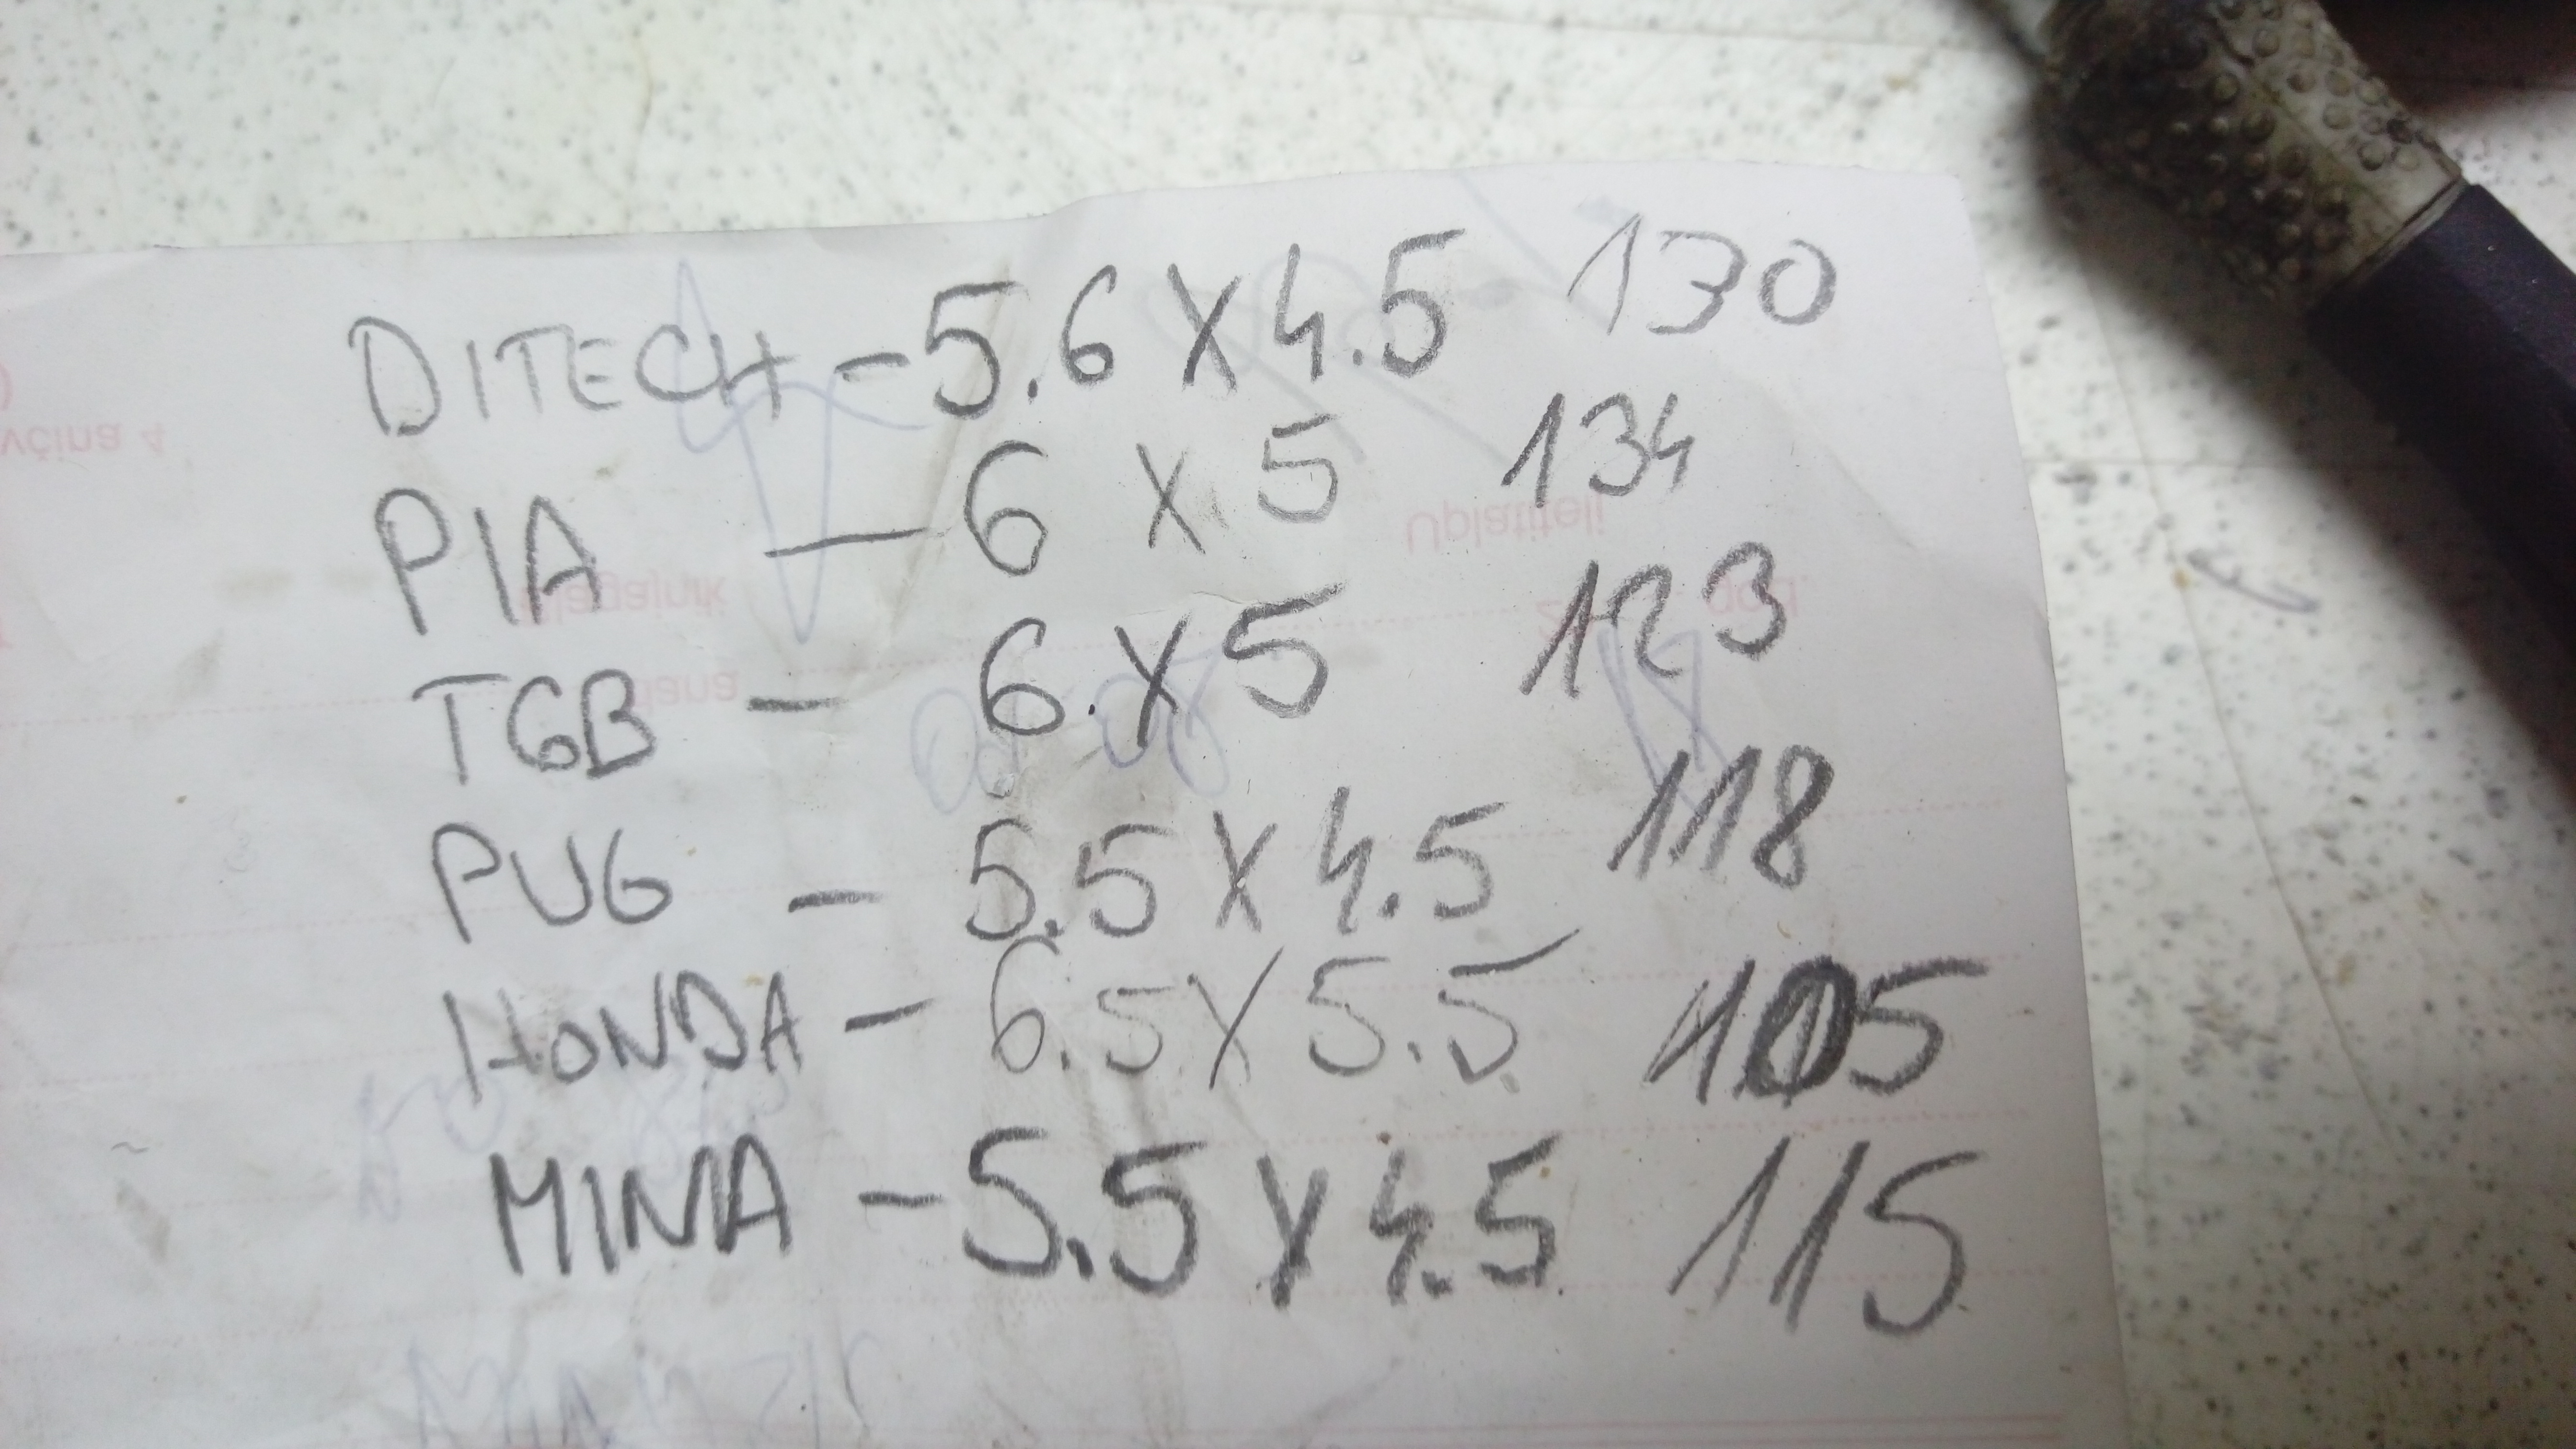 DITECH - 5.6 X 4.5 130
PIA - 6 X 5 134
TGB - 6. X 5 123
PUG - 5.5 X 4.5 118
HONDA - 6.5 X 5.5 105
MINA - 5.5 X 4.5 115
Uplatitelj
Blagajnik
dana
god.